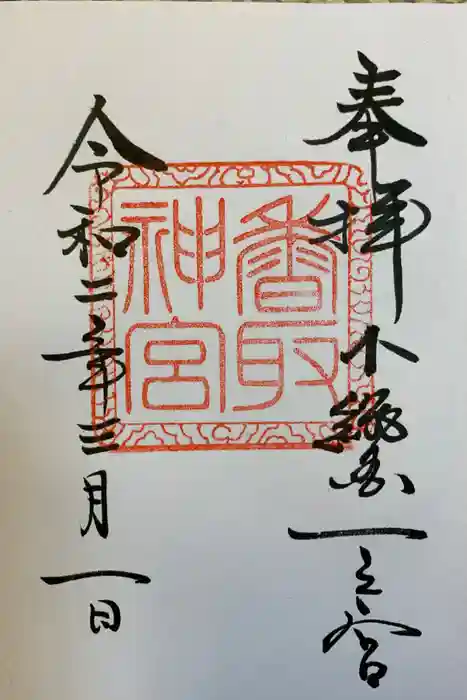 奉拝 下総国一之宮
香取
神宮
令和二年三月一日